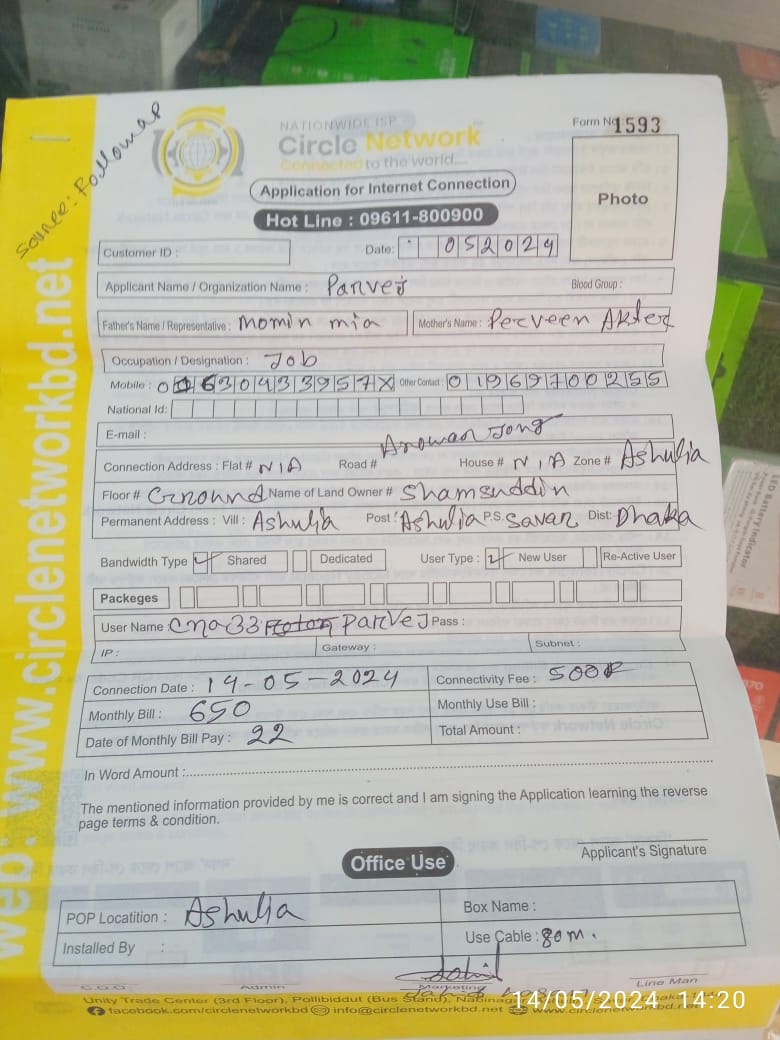 Source: Followap
NATIONWIDE ISP
Circle Network
Connected to the world....
Form No 1593
Application for Internet Connection
Photo
Hot Line : 09611-800900
Customer ID :
Date: 052024
Applicant Name / Organization Name : Parvej Blood Group :
Father's Name / Representative : Momin mia Mother's Name : Perveen Akter
Occupation / Designation : Job
Mobile : 01630433957X Other Contact : 01969700255
National Id:
E-mail :
Connection Address : Flat # N/A Road # Anowar Jong House # N/A Zone # Ashulia
Floor # Ground Name of Land Owner # Shamsuddin
Permanent Address : Vill : Ashulia Post : Ashulia P.S. Savar Dist: Dhaka
Bandwidth Type Shared Dedicated User Type : New User Re-Active User
Packeges
User Name cna33 Parvej Pass :
IP : Gateway : Subnet :
Connection Date : 14-05-2024 Connectivity Fee : 500
Monthly Bill : 650 Monthly Use Bill :
Date of Monthly Bill Pay : 22 Total Amount :
In Word Amount :
The mentioned information provided by me is correct and I am signing the Application learning the reverse
page terms & condition.
Applicant's Signature
Office Use
POP Locatition : Ashulia Box Name :
Installed By : Use Cable : 80m.
C.O.O Admin Marketing Line Man
Unity Trade Center (3rd Floor), Pollibiddut (Bus Stand), Nabinagar
facebook.com/circlenetworkbd info@circlenetworkbd.net www.circlenetworkbd.net
web: www.circlenetworkbd.net
LED Battery Indicator
14/05/2024 14:20